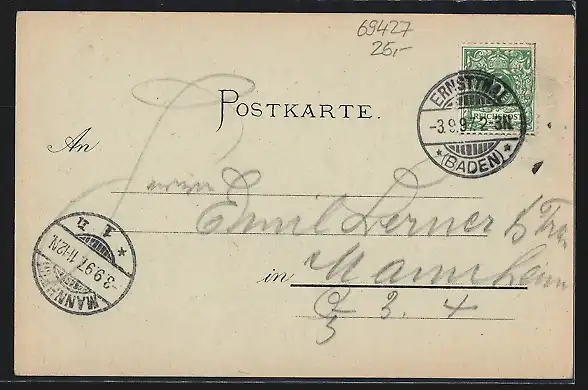 69427
25,-
REICHSPOST
ERNSTTHAL
-3.9.97. 2-3N
* (BADEN) *
POSTKARTE.
An
Emil Lerner
in Mannheim
MANNHEIM
-3.9.97. 11-12N
* 1
3. 4